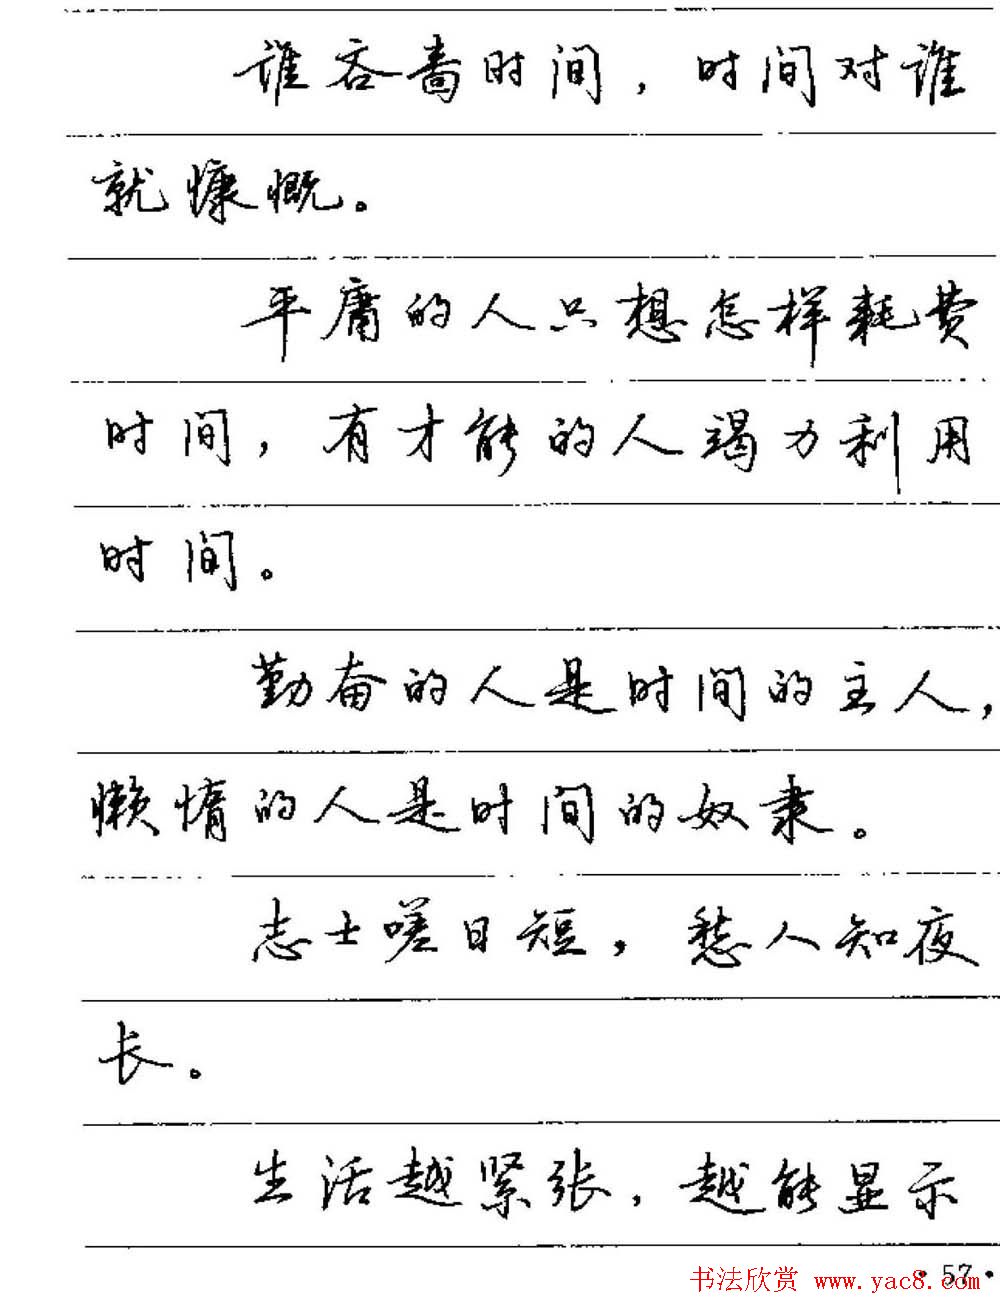 谁吝啬时间，时间对谁
就慷慨。
平庸的人只想怎样耗费
时间，有才能的人竭力利用
时间。
勤奋的人是时间的主人，
懒惰的人是时间的奴隶。
志士嗟日短，愁人知夜
长。
生活越紧张，越能显示
·57·
书法欣赏 www.yac8.com